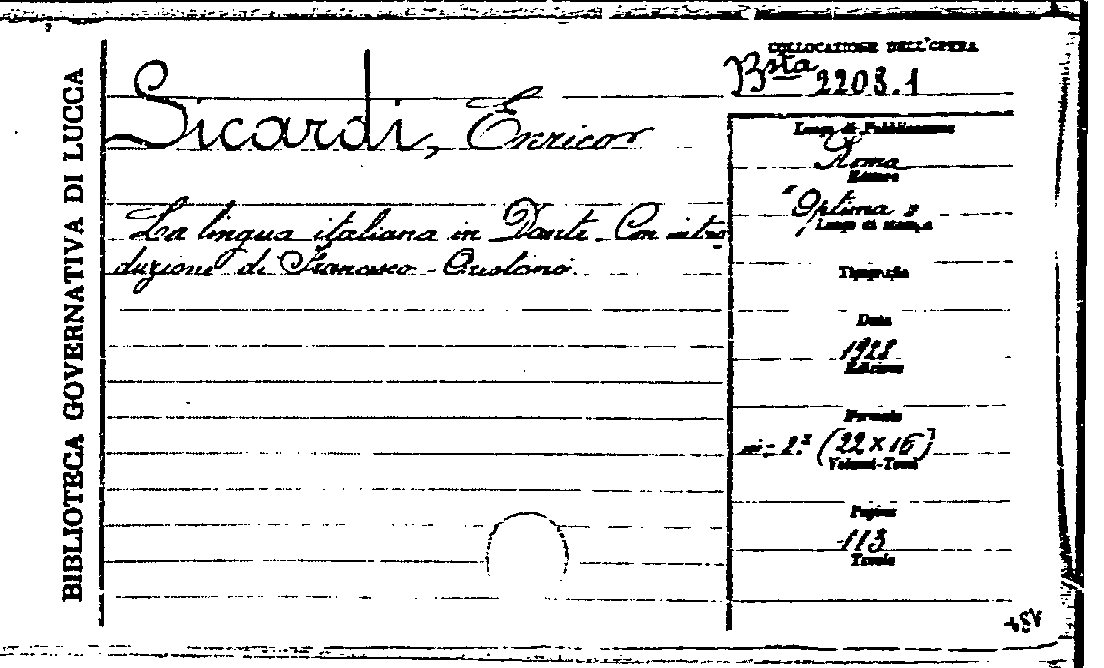 BIBLIOTECA GOVERNATIVA DI LUCCA
COLLOCAZIONE DELL'OPERA
Bsta 2208.1
Sicardi, Enrico
La lingua italiana in Dante. Con intro
duzione di Francesco Orestano.
Luogo di Pubblicazione
Roma
Editore
"Optima"
Luogo di stampa
Tipografia
Data
1928
Edizione
Formato
in-2.° (22×16)
Volumi-Tomi
Pagine
113
Tavole